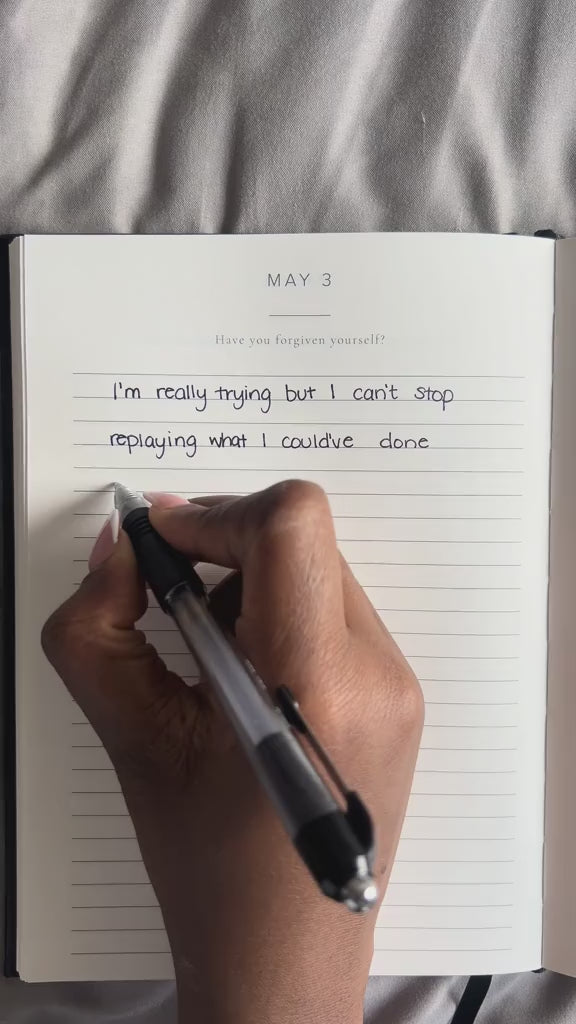 MAY 3
Have you forgiven yourself?
I'm really trying but I can't stop
replaying what I could've done